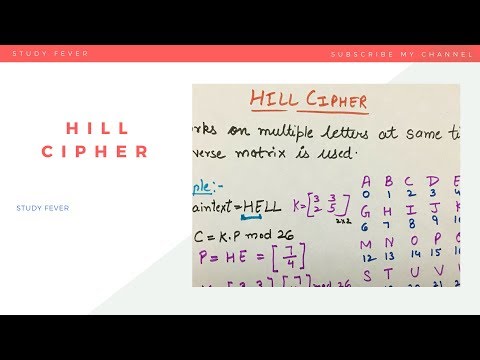 STUDY FEVER
SUBSCRIBE MY CHANNEL
HILL
CIPHER
STUDY FEVER
HILL CIPHER
rks on multiple letters at same ti
verse matrix is used.
ple:-
aintext=HELL K=[3 3
2 5]2x2
C = K.P mod 26
P = HE = [7
4]
A B C D E
0 1 2 3 4
G H I J K
6 7 8 9 10
M N O P
12 13 14 15
S T U V
mod 26